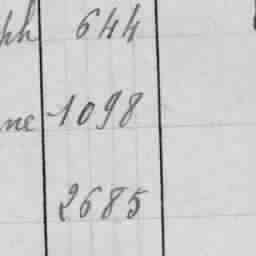 ph 644
ne 1098
2685